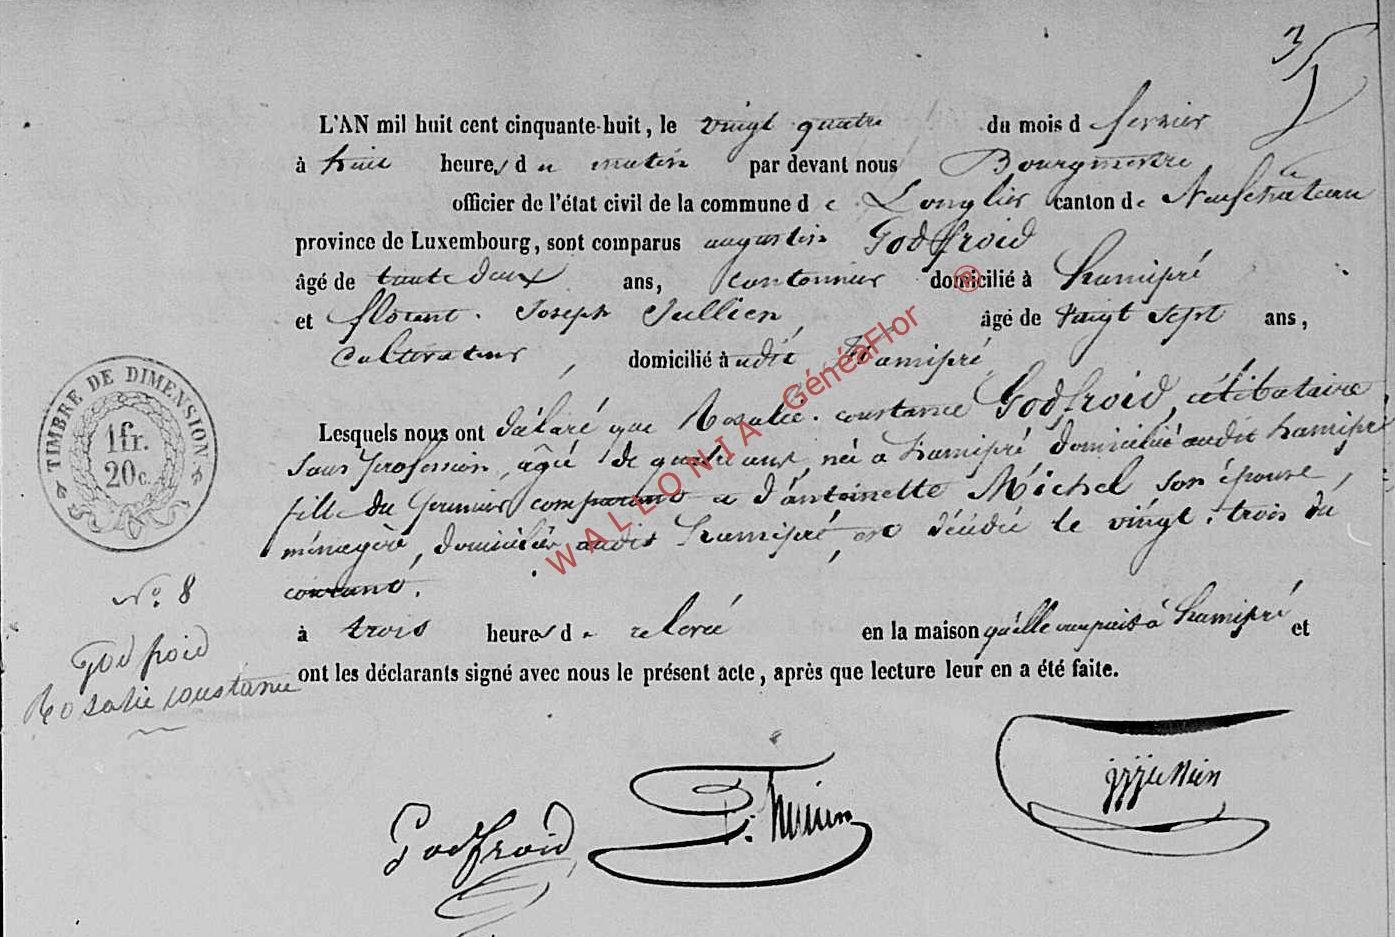 35
L'AN mil huit cent cinquante-huit, le vingt quatre du mois d fevrier
à huit heures du matin par devant nous Bourgmestre
officier de l'état civil de la commune de Longlier canton de Neufchâteau
province de Luxembourg, sont comparus augustin Godfroid
âgé de trente deux ans, cantonnier domicilié à hamipré
et florent Joseph Jullien, âgé de Vingt Sept ans,
Cultivateur, domicilié à udit hamipré
Lesquels nous ont déclaré que Rosalie constance Godfroid, célibataire
sans profession, âgée de quatre ans, née à hamipré domiciliée audit hamipré
fille du premier comparant et d'antoinette Michel son épouse,
ménagère, domiciliée audit hamipré, est décédée le vingt trois du
courant.
à trois heures de relevée en la maison qu'elle occupait à hamipré et
ont les déclarants signé avec nous le présent acte, après que lecture leur en a été faite.
TIMBRE DE DIMENSION
1fr.
20c.
No. 8
Godfroid
Rosalie constance
Godfroid
WALLONIA GénéaFlor ®